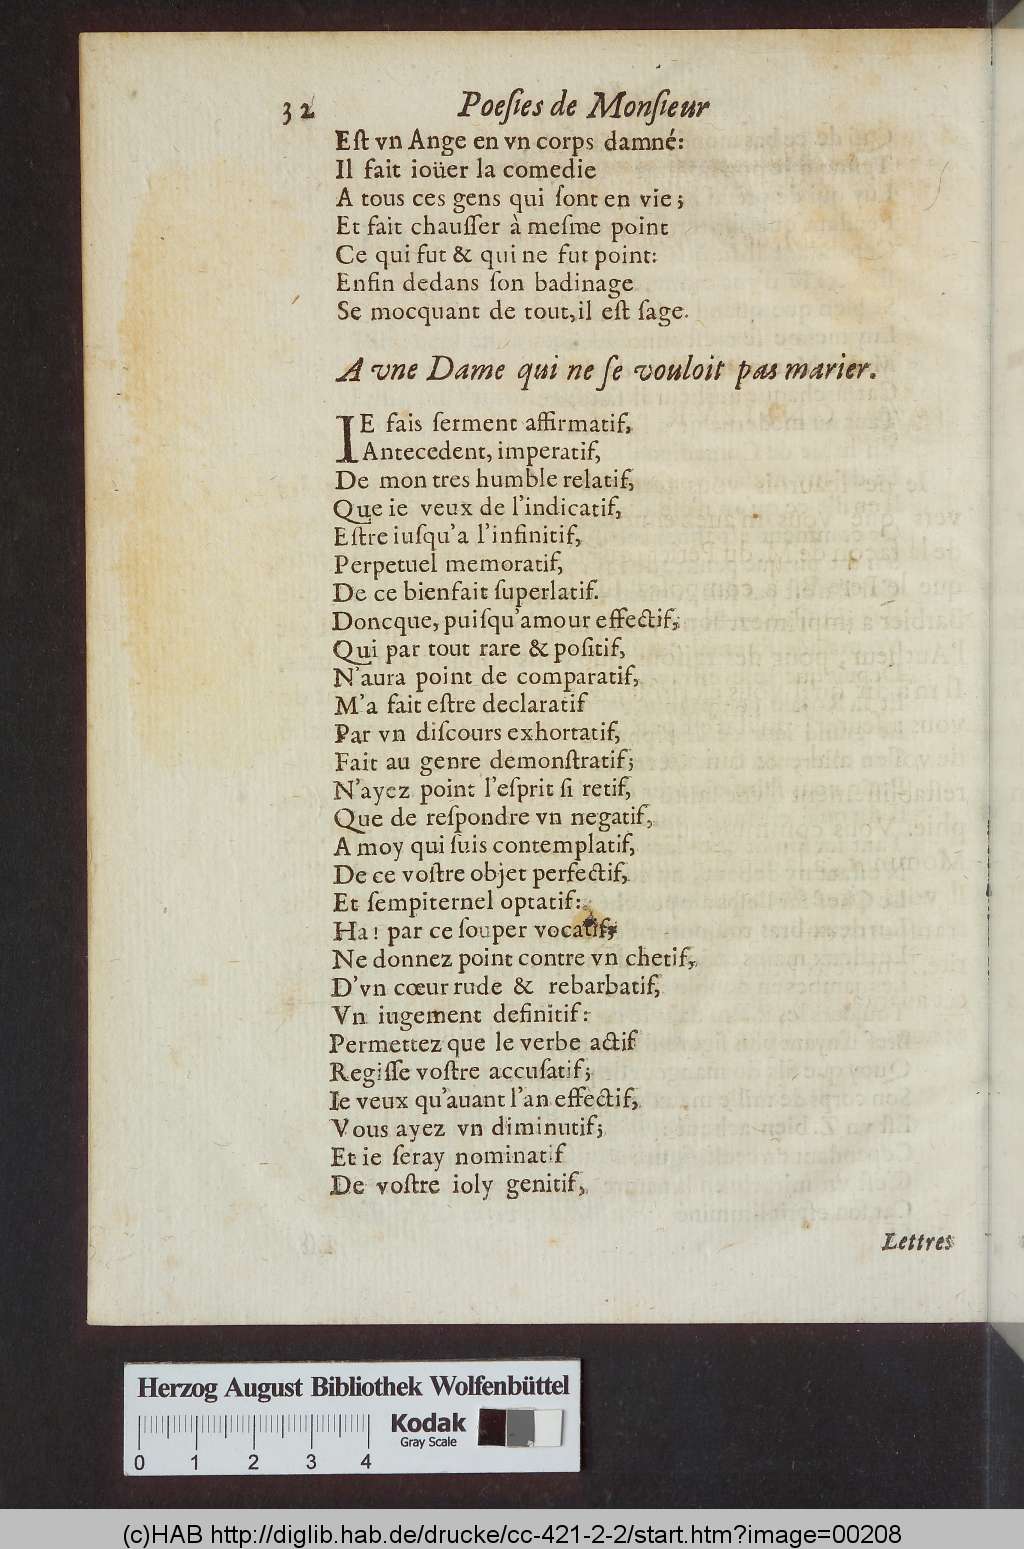 32 Poeſies de Monſieur
Eſt vn Ange en vn corps damné:
Il fait ioüer la comedie
A tous ces gens qui ſont en vie;
Et fait chauſſer à meſme point
Ce qui fut & qui ne fut point:
Enfin dedans ſon badinage
Se mocquant de tout, il eſt ſage.
A vne Dame qui ne ſe vouloit pas marier.
IE fais ſerment affirmatif,
Antecedent, imperatif,
De mon tres humble relatif,
Que ie veux de l'indicatif,
Eſtre iuſqu'a l'infinitif,
Perpetuel memoratif,
De ce bienfait ſuperlatif.
Doncque, puiſqu'amour effectif,
Qui par tout rare & poſitif,
N'aura point de comparatif,
M'a fait eſtre declaratif
Par vn diſcours exhortatif,
Fait au genre demonſtratif;
N'ayez point l'eſprit ſi retif,
Que de reſpondre vn negatif,
A moy qui ſuis contemplatif,
De ce voſtre objet perfectif,
Et ſempiternel optatif:
Ha! par ce ſouper vocatif,
Ne donnez point contre vn chetif,
D'vn cœur rude & rebarbatif,
Vn iugement definitif:
Permettez que le verbe actif
Regiſſe voſtre accuſatif;
Ie veux qu'auant l'an effectif,
Vous ayez vn diminutif;
Et ie ſeray nominatif
De voſtre ioly genitif,
Lettres
Herzog August Bibliothek Wolfenbüttel
Kodak
Gray Scale
0 1 2 3 4
(c)HAB http://diglib.hab.de/drucke/cc-421-2-2/start.htm?image=00208